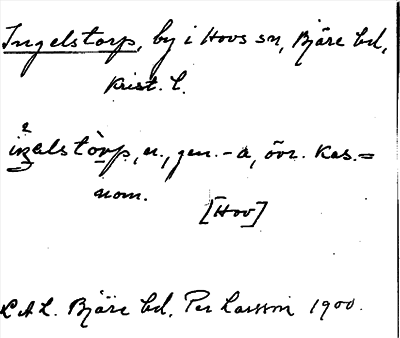 Ingelstorp, by i Hovs sn, Bjäre hd,
Krist. l.
iŋalstòrp, n., gen. -a, övr. kas. =
nom.
[Hov]
L.A.L. Bjäre hd. Per Larsson 1900.